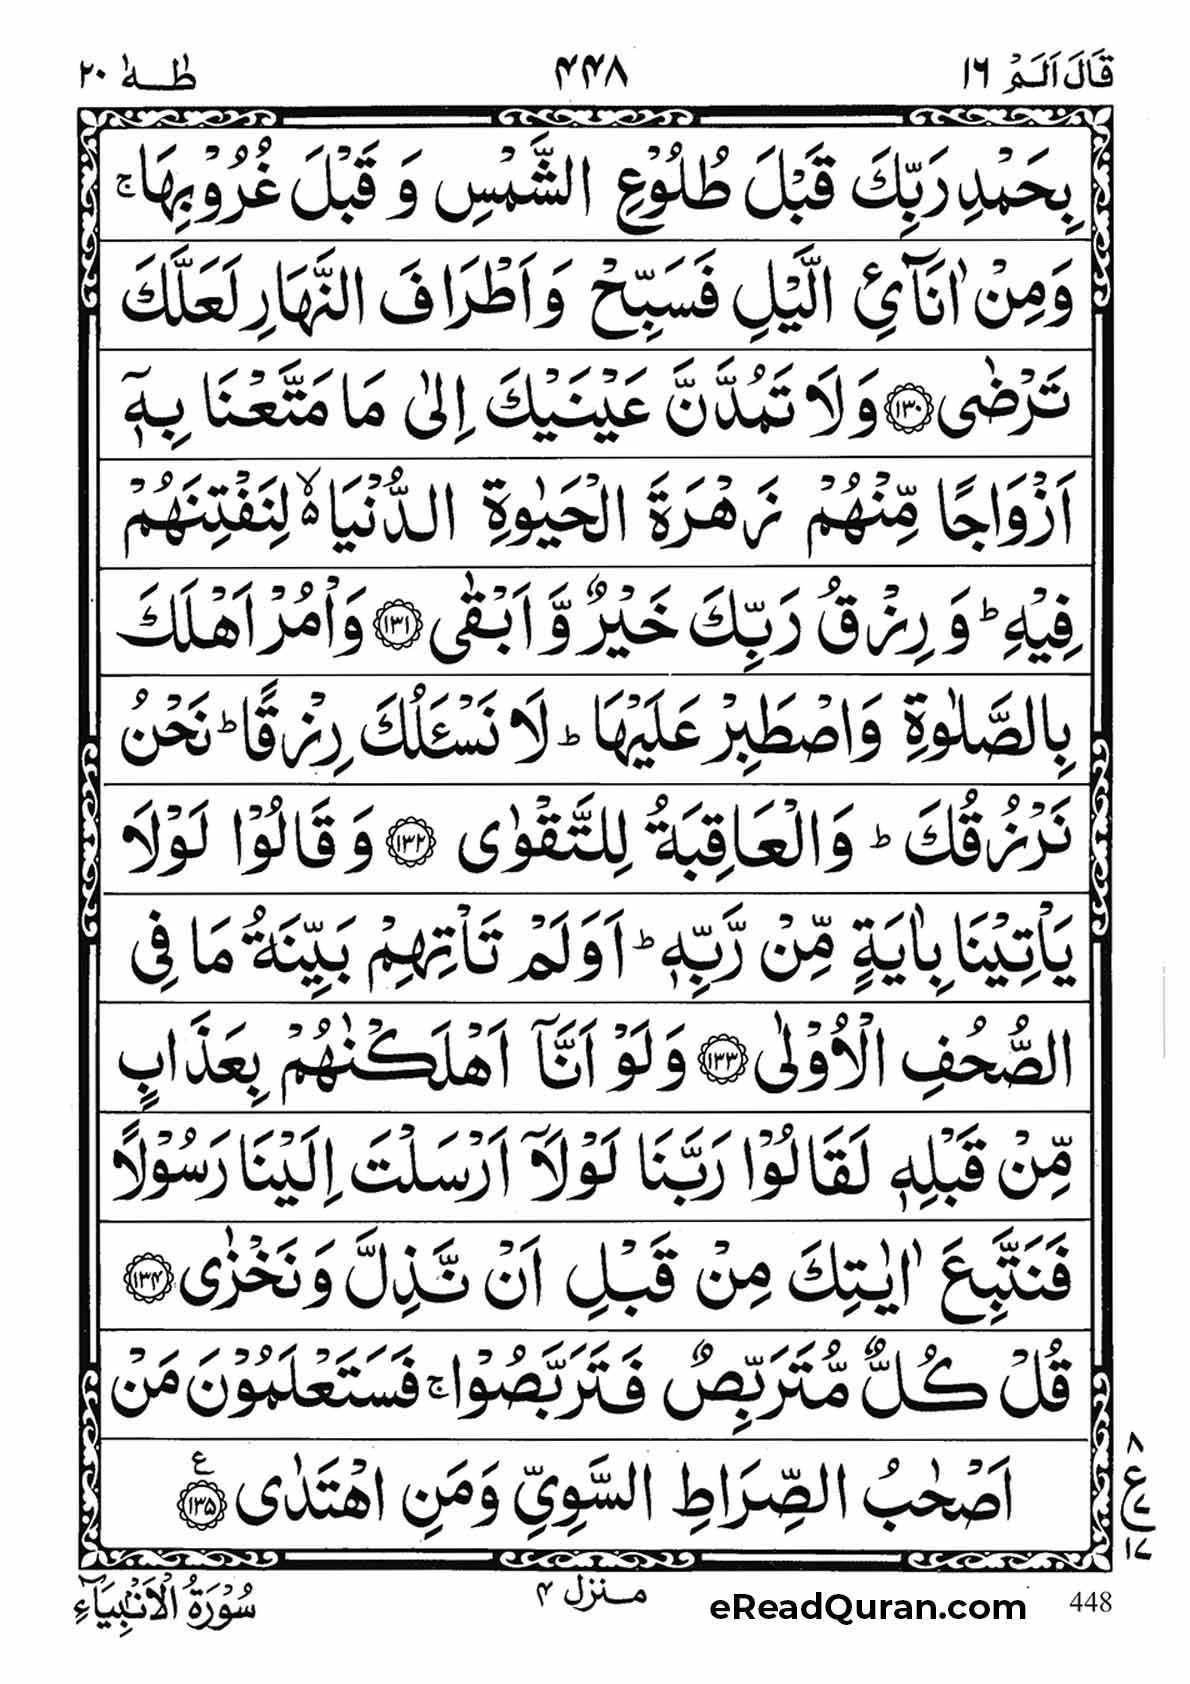 قَالَ اَلَمْ ١٦ ٤٤٨ طٰهٰ ٢٠
بِحَمْدِ رَبِّكَ قَبْلَ طُلُوْعِ الشَّمْسِ وَ قَبْلَ غُرُوْبِهَا ۚ
وَمِنْ اٰنَآئِ الَّيْلِ فَسَبِّحْ وَاَطْرَافَ النَّهَارِ لَعَلَّكَ
تَرْضٰى ﴿١٣٠﴾ وَلَا تَمُدَّنَّ عَيْنَيْكَ اِلٰى مَا مَتَّعْنَا بِهٖٓ
اَزْوَاجًا مِّنْهُمْ زَهْرَةَ الْحَيٰوةِ الدُّنْيَا ۙ۬ لِنَفْتِنَهُمْ
فِيْهِ ؕ وَ رِزْقُ رَبِّكَ خَيْرٌ وَّ اَبْقٰى ﴿١٣١﴾ وَاْمُرْ اَهْلَكَ
بِالصَّلٰوةِ وَاصْطَبِرْ عَلَيْهَا ؕ لَا نَسْـَٔلُكَ رِزْقًا ؕ نَحْنُ
نَرْزُقُكَ ؕ وَالْعَاقِبَةُ لِلتَّقْوٰى ﴿١٣٢﴾ وَ قَالُوْا لَوْلَا
يَاْتِيْنَا بِاٰيَةٍ مِّنْ رَّبِّهٖ ؕ اَوَلَمْ تَاْتِهِمْ بَيِّنَةُ مَا فِى
الصُّحُفِ الْاُوْلٰى ﴿١٣٣﴾ وَلَوْ اَنَّآ اَهْلَكْنٰهُمْ بِعَذَابٍ
مِّنْ قَبْلِهٖ لَقَالُوْا رَبَّنَا لَوْلَآ اَرْسَلْتَ اِلَيْنَا رَسُوْلًا
فَنَتَّبِعَ اٰيٰتِكَ مِنْ قَبْلِ اَنْ نَّذِلَّ وَ نَخْزٰى ﴿١٣٤﴾
قُلْ كُلٌّ مُّتَرَبِّصٌ فَتَرَبَّصُوْا ۚ فَسَتَعْلَمُوْنَ مَنْ
اَصْحٰبُ الصِّرَاطِ السَّوِيِّ وَمَنِ اهْتَدٰى ﴿١٣٥﴾ ع
٨
ع ٧
١٧
448 eReadQuran.com منزل ٤ سُوْرَةُ الْاَنْۢبِيَآءِ